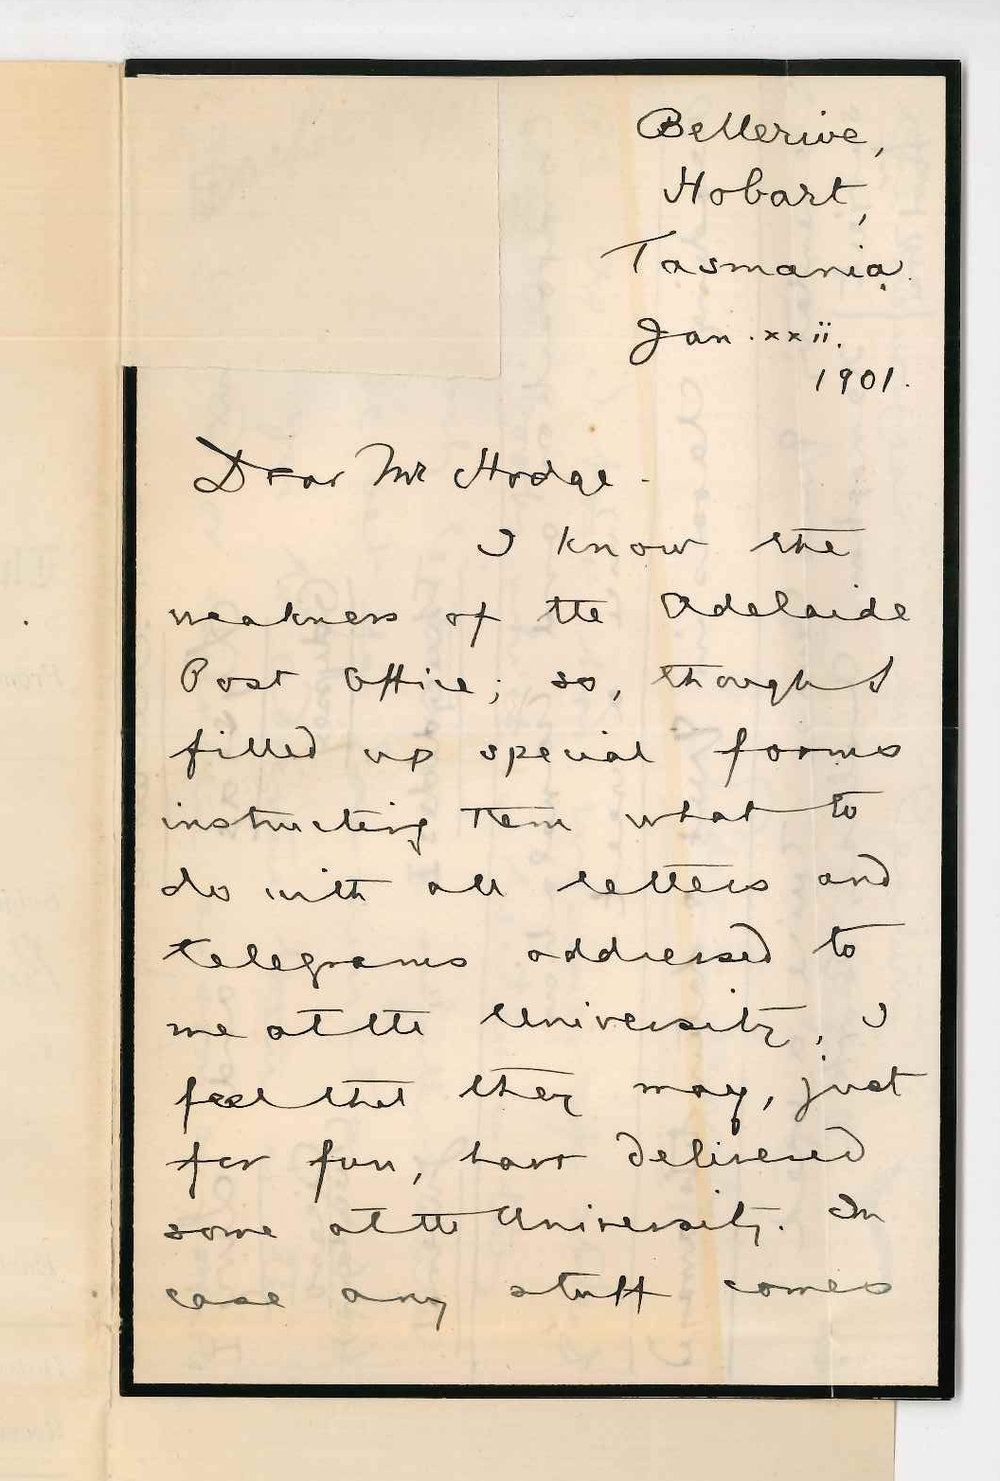 Bellerive,
Hobart,
Tasmania.
Jan. xxii.
1901.
Dear Mr Hodge.
I know the
weakness of the Adelaide
Post Office; so, though I
filled up special forms
instructing them what to
do with all letters and
telegrams addressed to
me at the University, I
feel that they may, just
for fun, have delivered
some at the University. In
case any stuff comes